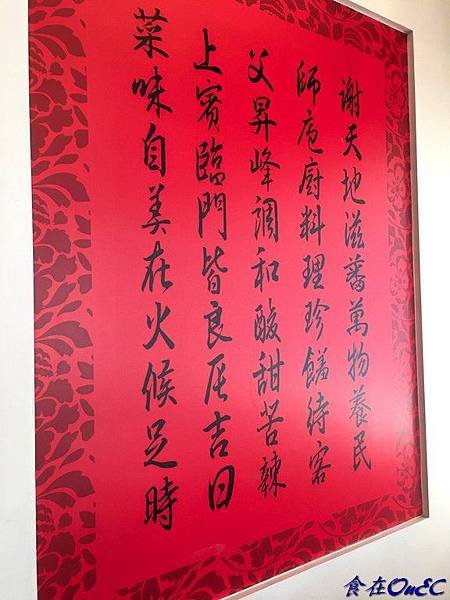 謝天地滋蕃萬物養民
師庖廚料理珍饈待客
父昇峰調和酸甜苦辣
上賓臨門皆良辰吉日
菜味自美在火候足時
食在OnEC